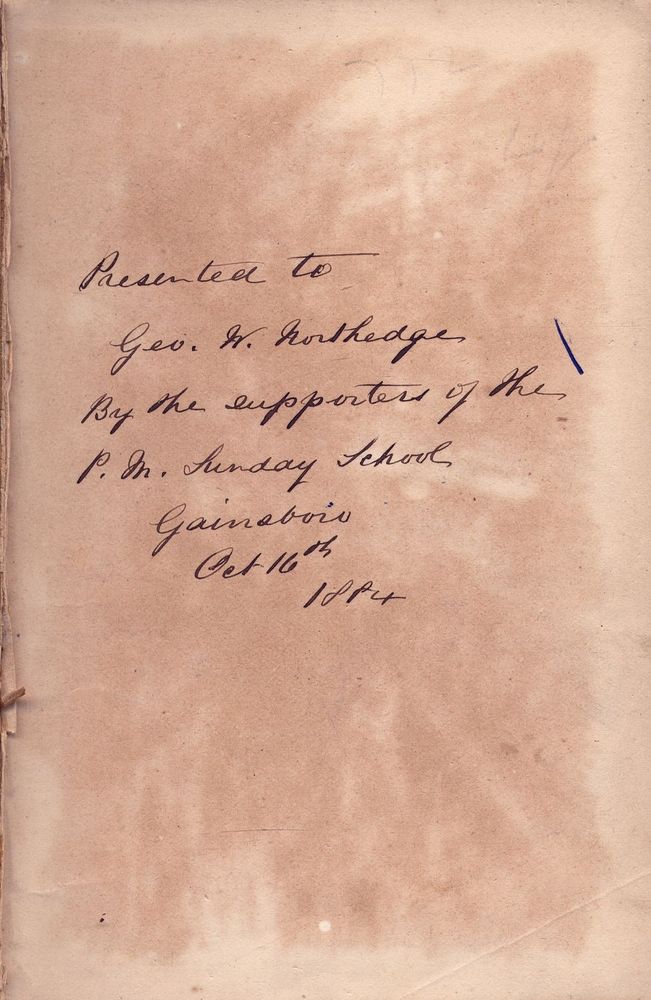 Presented to
Geo. W. Northedge
By the supporters of the
P. M. Sunday School
Gainsboro
Oct 16th
1884